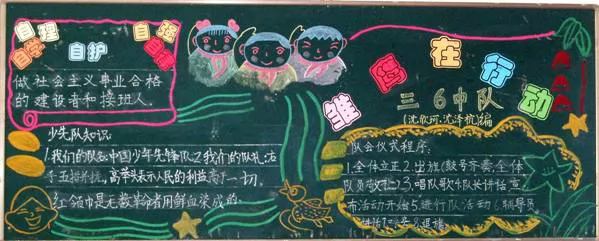 自理
自强
自学
自护
自律
做社会主义事业合格
的建设者和接班人.
少先队知识:
1.我们的队名:中国少年先锋队2.我们的队礼:右手
五指并拢,高举头表示人民的利益高于一切.
红领巾是无数革命者用鲜血染成的.
雏鹰在行动
三6中队
(沈欣珂.沈泽杭)编
队会仪式程序:
1.全体立正2.出旗(鼓号齐奏,全体
队员敬礼)3.唱队歌4.队长讲话宣
布活动开始5.进行队活动6.辅导员
8.退旗